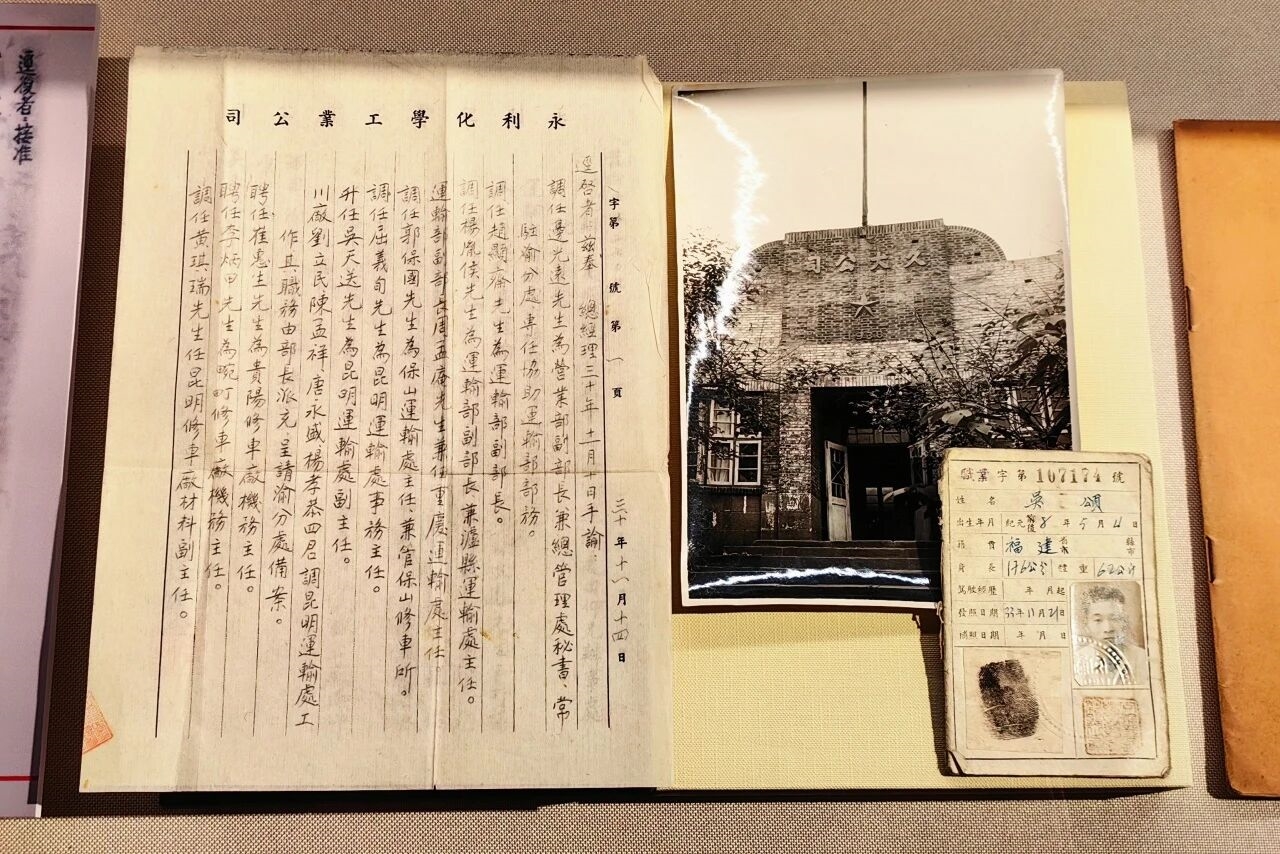 逕復者:接准
永利化學工業公司
字第 號第 一 頁 三十年十一月十四日
逕啓者茲奉 總經理三十年十一月十日手諭、
調任邊光遠先生為營業部副部長兼總管理處秘書、常
駐渝分處專任協助運輸部部務。
調任趙顯齋先生為運輸部副部長。
調任楊胤侯先生為運輸部副部長、兼瀘縣運輸處主任。
運輸部副部長周孟庵先生兼任重慶運輸處主任。
調任郭保國先生為保山運輸處主任、兼管保山修車所。
調任屈義旬先生為昆明運輸處事務主任。
升任吳天送先生為昆明運輸處副主任。
川廠劉立民陳孟祥唐永盛楊孝恭四君調昆明運輸處工
作其職務由部長派充呈請渝分處備案。
聘任崔惠生先生為貴陽修車廠機務主任。
聘任李炳田先生為畹町修車廠機務主任。
調任黃琪瑞先生任昆明修車廠材料副主任。
久大公司
職業字第107174號
姓名 吳 頌
出生年月 紀元前後 8年5月4日
籍貫 福建 省市 縣市
身長 176公分 體重 62公斤
駕駛經歷 年 月起
發照日期 33年11月21日
換照日期 年 月 日